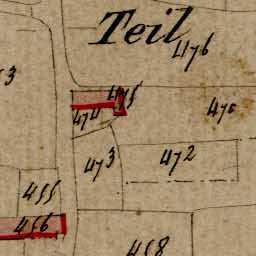 Teil
476
475
474
473
472
455
456
458